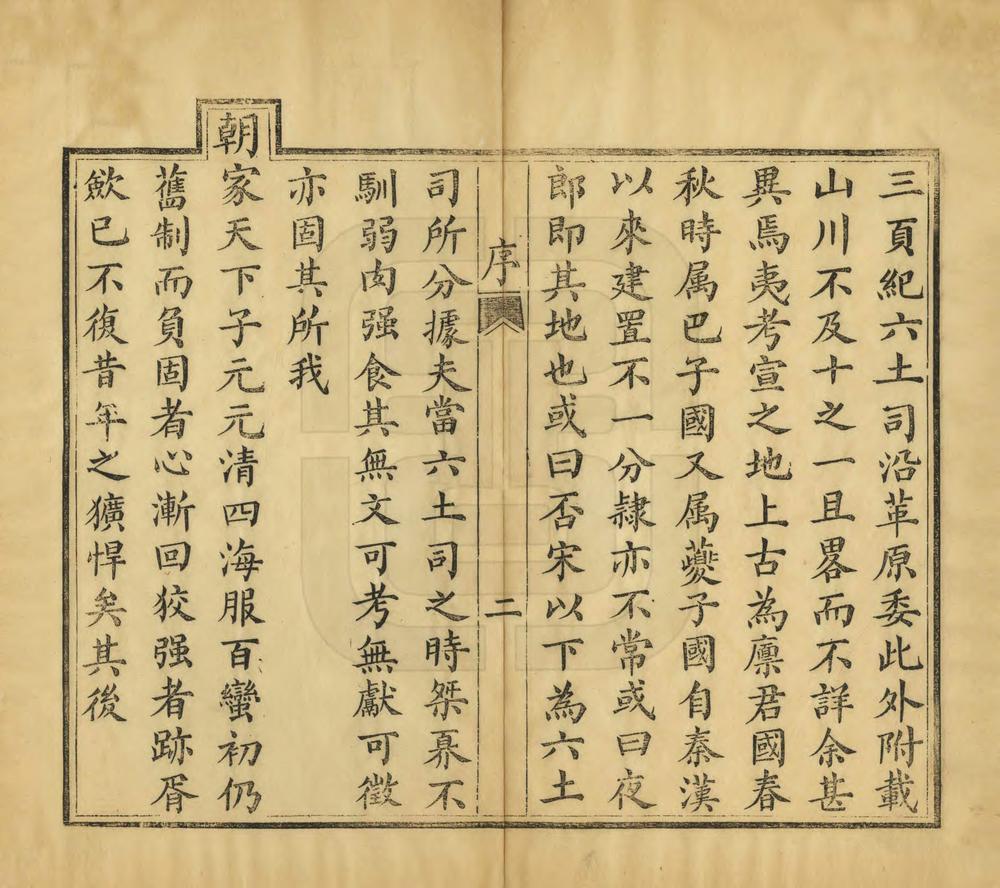 三頁紀六土司沿革原委此外附載
山川不及十之一且畧而不詳余甚
異焉夷考宣之地上古為廪君國春
秋時属巴子國又属夔子國自秦漢
以來建置不一分隷亦不常或曰夜
郎即其地也或曰否宋以下為六土
序
二
司所分據夫當六土司之時桀驁不
馴弱肉强食其無文可考無獻可徵
亦固其所我
朝家天下子元元清四海服百蠻初仍
舊制而負固者心漸回狡强者跡胥
歛已不復昔年之獷悍矣其後